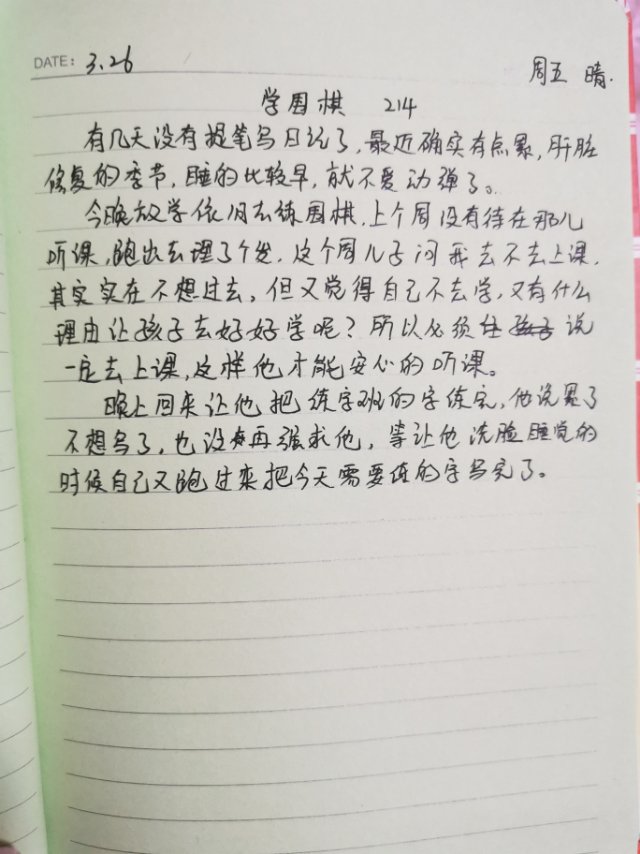 DATE: 3.26
周五 晴.
学围棋 214
有几天没有提笔写日记了,最近确实有点累,肝脏
修复的季节,睡的比较早,就不爱动弹了。
今晚放学依旧去练围棋,上个周没有待在那儿
听课,跑出去理了个发,这个周儿子问我去不去上课,
其实实在不想过去,但又觉得自己不去学,又有什么
理由让孩子去好好学呢?所以必须 说
一定去上课,这样他才能安心的听课。
晚上回来让他把练字班的字练完,他说累了
不想写了,也没再强求他,等让他洗脸睡觉的
时候自己又跑过来把今天需要练的字写完了。